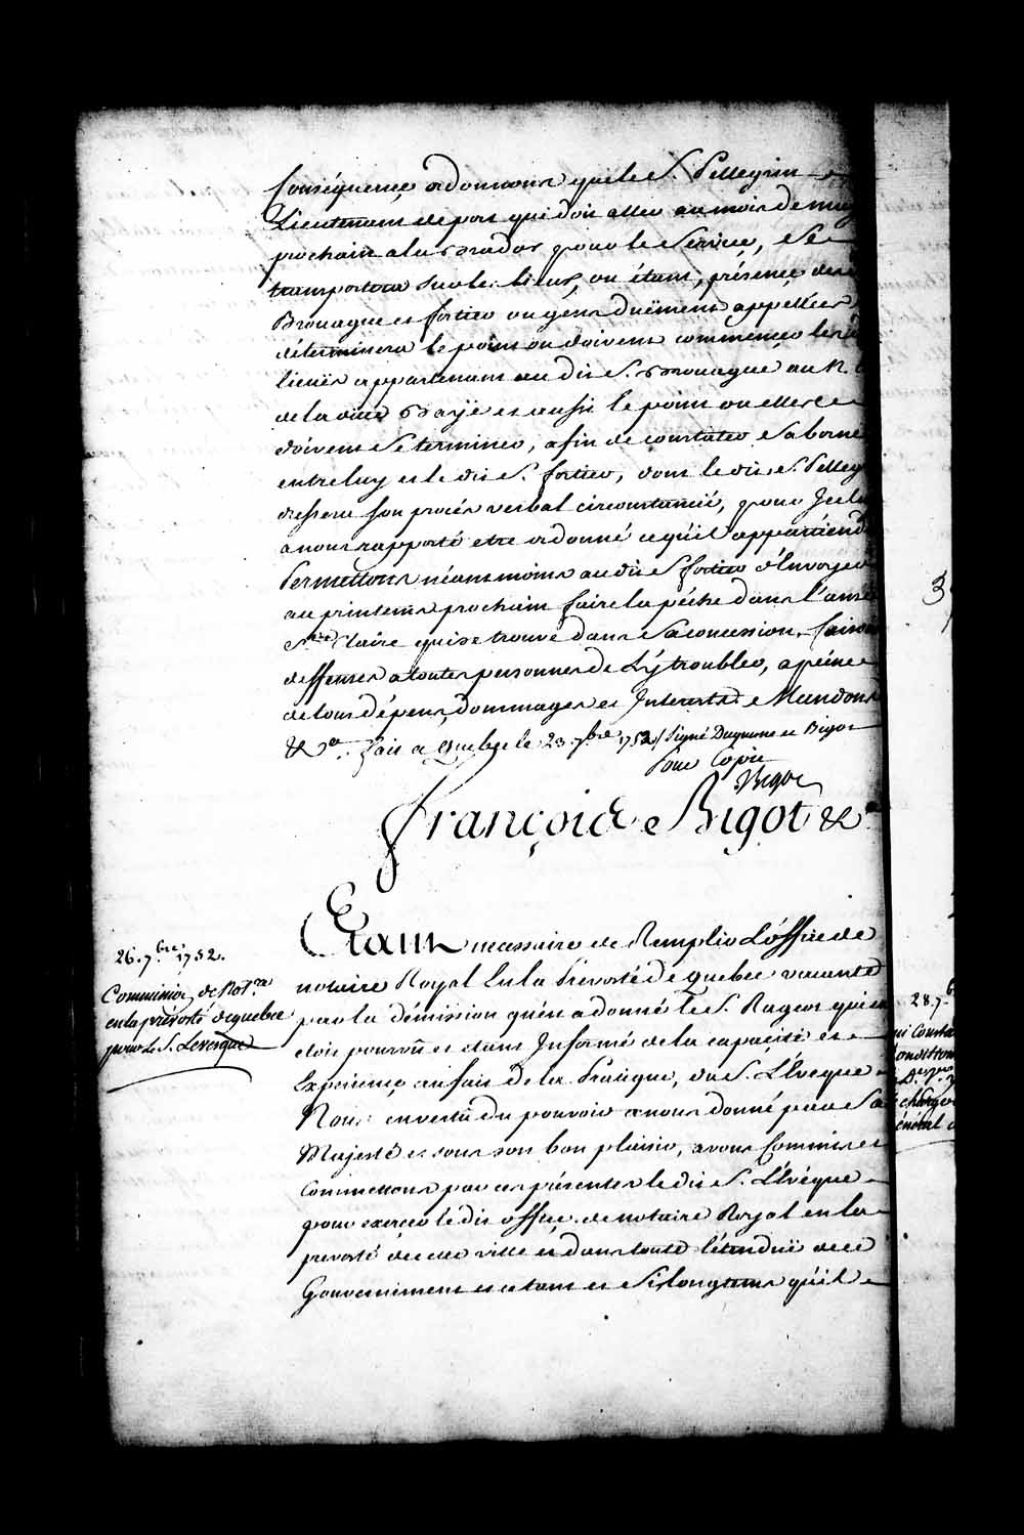 Conséquence ordonnons que le S. Pellegrin
Lieutenant de port qui doit aller au mois de may
prochain a labrador pour le Service, Se
transportera sur les lieux, ou étant, présence des S.
Brouague et fortier ou gens duëment appellées
déterminera le point ou doivent commencer les
lieuës appartenant au dit S. Brouague au N.
de la dite Baye et aussi le point ou elles
doivent Se terminer, afin de constater Sa borne
entre luy et le dit S. fortier, dont le dit S. Pelleg
dressera son procès verbal circonstantié, pour Iceluy
a nous rapporté etre ordonné ce qu'il appartiendra
Permettons néantmoins au dit S. fortier d'Envoyer
au printems prochain faire la pêche dans l'ance
Ste Claire qui se trouve dans Sa concession. faisons
deffenses a toutes personnes de L'y troubler, a peine
de tous dépens, dommages et Interests. Mandons
&a. fait a Quebec le 23. 7bre 1752 / Signé Duquesne et Bigot
Pour Copie
Bigot
François Bigot &a.
26. 7bre 1752.
Commission de Notre
en la prevosté de quebec
pour Le S. Levesque
Etant necessaire de Remplir L'office de
notaire Royal En la Prevosté de quebec vacante
par la démission qu'en a donné le S. Rageot qui en
etoit pourvû et étant Informé de la capacité et
Experience au fait de la Pratique, du S. L'Evêque
Nous en vertu du pouvoir a nous donné par Sa
Majesté et sous son bon plaisir, avons Commis et
Commettons par ces présentes le dit S. L'évêque
pour exercer le dit office de notaire Royal en la
prevosté de cette ville et dans toute l'étenduë de ce
Gouvernement et ce tant et Si longtems qu'il
28. 7b